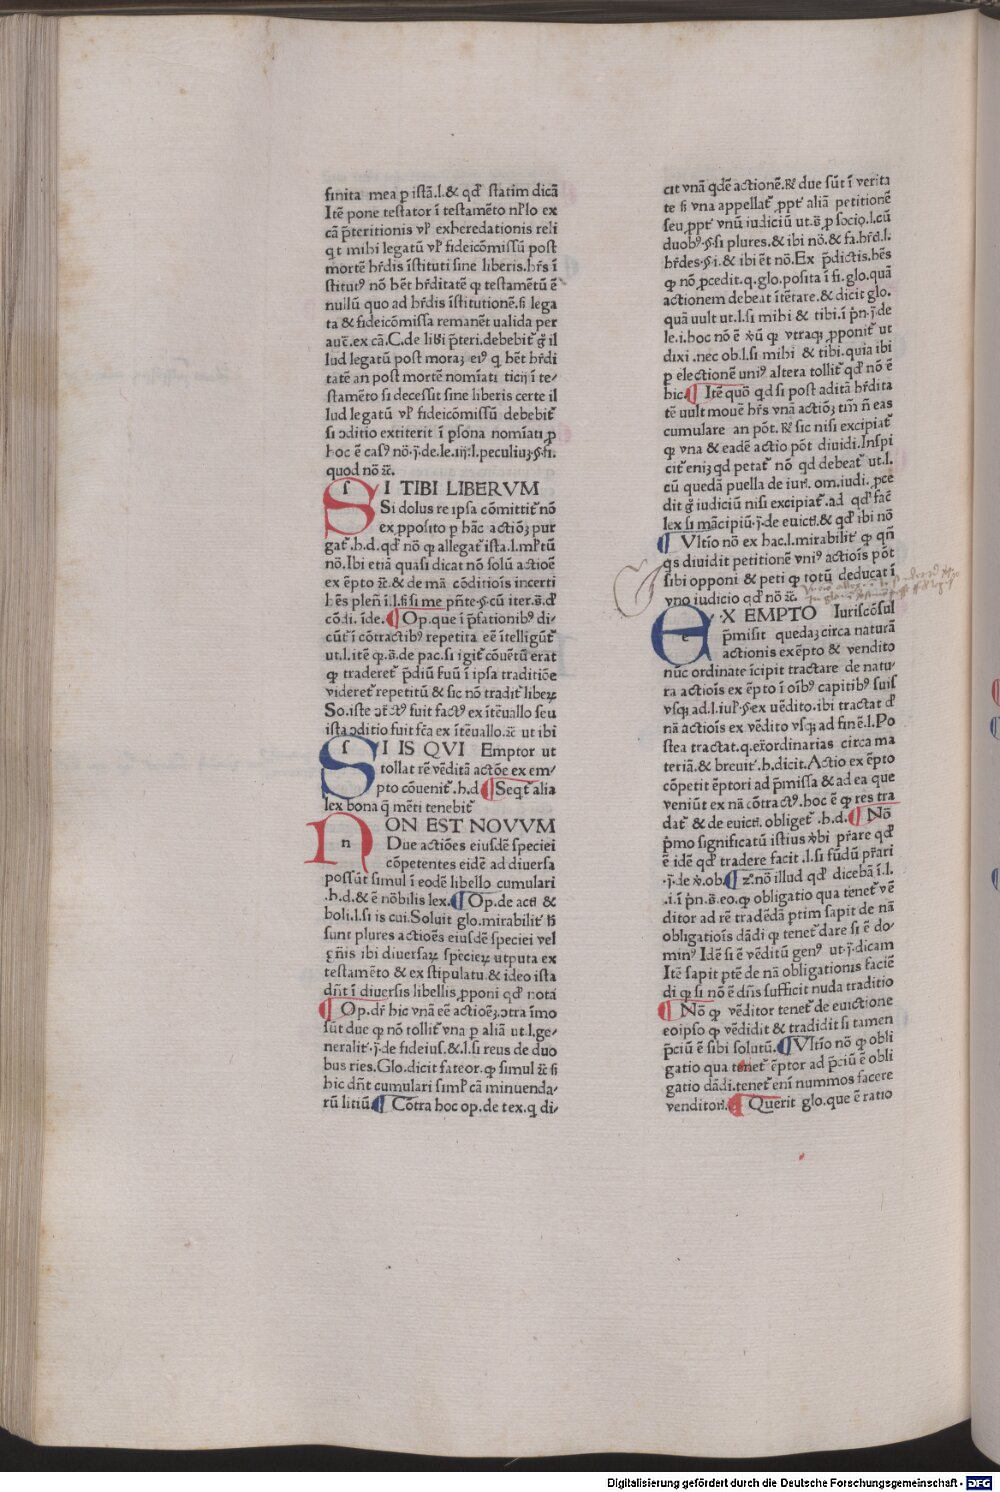 finita mea ꝑ istã.l.& qđ statim dicã
Itẽ pone testator ĩ testamẽto nr̃lo ex
cã p̃teritionis vľ exheredationis reli
q̃t mihi legatũ vľ fideicõmissũ post
mortẽ hr̃dis ĩstituti sine liberis.hr̃s ĩ
stitutꝰ nõ hẽt hr̃ditatẽ ꝙ testamẽtũ ẽ
nullũ quo ad hr̃dis ĩstitutionẽ.si lega
ta & fideicõmissa remanẽt ualida per
aut̃.ex cã.C.de liƀi p̃teri.debebit̃ g̃ il
lud legatũ post moraꝫ eiꝰ q̃ hẽt hr̃di
tatẽ an post mortẽ nomĩati ticij ĩ te/
stamẽto si decessit sine liberis certe il
lud legatũ vľ fideicõmissũ debebit̃
si ɔditio extiterit ĩ ꝑsona nomĩati ꝓ
hoc ẽ casꝰ nõ.j̃.de.le.iij:l.peculiuꝫ.§.fi.
quod nõ ⁊c̃.
SI TIBI LIBERVM
Si dolus re ipsa cõmittit̃ nõ
ex ꝓposito ꝑ hãc actiõꝫ pur
gat̃.h.d.qđ nõ ꝙ allegat̃ ista.l.mľtũ
nõ.Ibi etiã quasi dicat nõ solũ actioẽ
ex ẽpto ⁊c̃.& de mã cõditiõis incerti
hẽs pleñ ĩ.l.si si me pñte.§.cũ iter.s̃.đ
cõdi. ĩde. Op.que ĩ p̃fationibꝰ di/
cũt̃ ĩ cõtractibꝰ repetita eẽ ĩtelligũt̃
ut.l.itẽ ꝙ.s̃.de pac.si igit̃ cõuẽtũ erat
ꝙ traderet̃ p̃diũ fuũ ĩ ipsa traditiõe
videret̃ repetitũ & sic nõ tradit̃ libeꝝ
So.iste ɔt̃ctꝰ fuit factꝰ ex ĩtẽuallo seu
ista ɔditio fuit fc̃a ex ĩtẽuallo.⁊c̃ ut ibi
SI IS QVI Emptor ut
tollat rẽ vẽditã actõe ex em/
pto cõuenit̃.h.d Seqt̃ alia
lex bona q̃ mẽti tenebit̃
NON EST NOVVM
Due actiões eiusdẽ speciei
cõpetentes eidẽ ad diuersa
possũt simul ĩ eodẽ libello cumulari
.h.d.& ẽ nõbilis lex. Op.de acti &
boli.l.si is cui.Soluit glo.mirabilit̃ ƀ
sunt plures actioẽs eiusdẽ speciei vel
gñis ibi diuersaꝝ specieꝝ utputa ex
testamẽto & ex stipulatu & ideo ista
dñt ĩ diuersis libellis ꝓponi qđ nota
Op.dr̃ hic vnã eẽ actioẽꝫ.ɔtra ĩmo
sũt due ꝙ nõ tollit̃ vna ꝑ aliã ut.l.ge/
neralit̃.j̃.de fideius.&.l.si reus de duo
bus ries.Glo.dicit fateor.ꝙ simul ⁊c̃ si
hic dñt cumulari simľ cã minuenda/
rũ litiũ Cõtra hoc op.de tex.q̃ di/
cit vnã qđẽ actionẽ.R̃ due sũt ĩ verita
te si vna appellat̃ ꝓpt̃ aliã petitionẽ
seu ꝓpt̃ vnũ iudiciũ ut.s̃ ꝓ socio.l.cũ
duobꝰ.§.si plures.& ibi nõ.& fa.hr̃d.l.
hr̃des.§.i.& ibi ẽt nõ.Ex p̃dictis.hẽs
ꝙ nõ ꝓcedit.q.glo.posita ĩ fi.glo.quã
actionem debeat ĩtẽtare.& dicit glo.
quã uult ut.l.si mihi & tibi.ĩ p̃n.j̃.de
le.i.hoc nõ ẽ v̾ũ ꝙ vtraqꝫ ꝓponit̃ ut
dixi.nec ob.l.si mihi & tibi.quia ibi
ꝑ electionẽ uniꝰ altera tollit̃ qđ nõ ẽ
hic Itẽ quõ qđ si post aditã hr̃dita
tẽ uult mouẽ hr̃s vnã actiõꝫ tm̃ ñ eas
cumulare an põt.R̃ sic nisi excipiat̃
ꝙ vna & eadẽ actio põt diuidi.Inspi
cit̃ eniꝫ qđ petat̃ nõ qđ debeat̃ ut.l.
cũ quedã puella de iuri. om.iudi.ꝓce
dit g̃ iudiciũ nisi excipiat̃.ad qđ facẽ
lex si mãcipiũ.j̃.de euicti.& qđ ibi nõ
Vltĩo nõ ex hac.l.mirabilit̃ ꝙ qñ
qs diuidit petitionẽ vniꝰ actiõis põt
sibi opponi & peti ꝙ totũ deducat̃ ĩ
vno iudicio qđ nõ ⁊c̃.
EX EMPTO Iuriscõsul
p̃misit quedaꝫ circa naturã
actionis ex ẽpto & vendito
nũc ordinate ĩcipit tractare de natu/
ra actiõis ex ẽpto ĩ oĩbꝰ capitibꝰ suis
vsqꝫ ad.l.iuľ.§.ex uẽdito.ibi tractat đ
nã actiõis ex vẽdito vsqꝫ ad finẽ.l.Po
stea tractat.q.ex̃ordinarias circa ma
teriã.& breuit̃.h.dicit.Actio ex ẽpto
cõpetit ẽptori ad p̃missa & ad ea que
veniũt ex nã cõtractꝰ.hoc ẽ ꝙ res tra
dat̃ & de euicti. obliget̃.h.d. Nõ
p̃mo significatũ istius v̾bi p̃stare qđ
ẽ idẽ qđ tradere facit.l.si fũdũ p̃stari
.j̃.de v̾.ob. 2.nõ illud qđ dicebã ĩ.l.
.i.ĩ p̃n.s̃.eo.ꝙ obligatio qua tenet̃ vẽ
ditor ad rẽ tradẽdã ꝑtim sapit de nã
obligatiõis dãdi ꝙ tenet̃ dare si ẽ do/
minꝰ Idẽ si ẽ vẽditũ genꝰ ut.j̃.dicam
Itẽ sapit ptẽ de nã obligationis faciẽ
di ꝙ si nõ ẽ dñs sufficit nuda traditio
Nõ ꝙ vẽditor tenet̃ de euictione
eoipso ꝙ vẽdidit & tradidit si tamen
p̃ciũ ẽ sibi solutũ. Vltĩo nõ ꝙ obli
gatio qua tenet̃ ẽptor ad p̃ciũ ẽ obli
gatio dãdi.tenet̃ enĩ nummos facere
venditori. Querit glo.que ẽ ratio
Digitalisierung gefördert durch die Deutsche Forschungsgemeinschaft - DFG